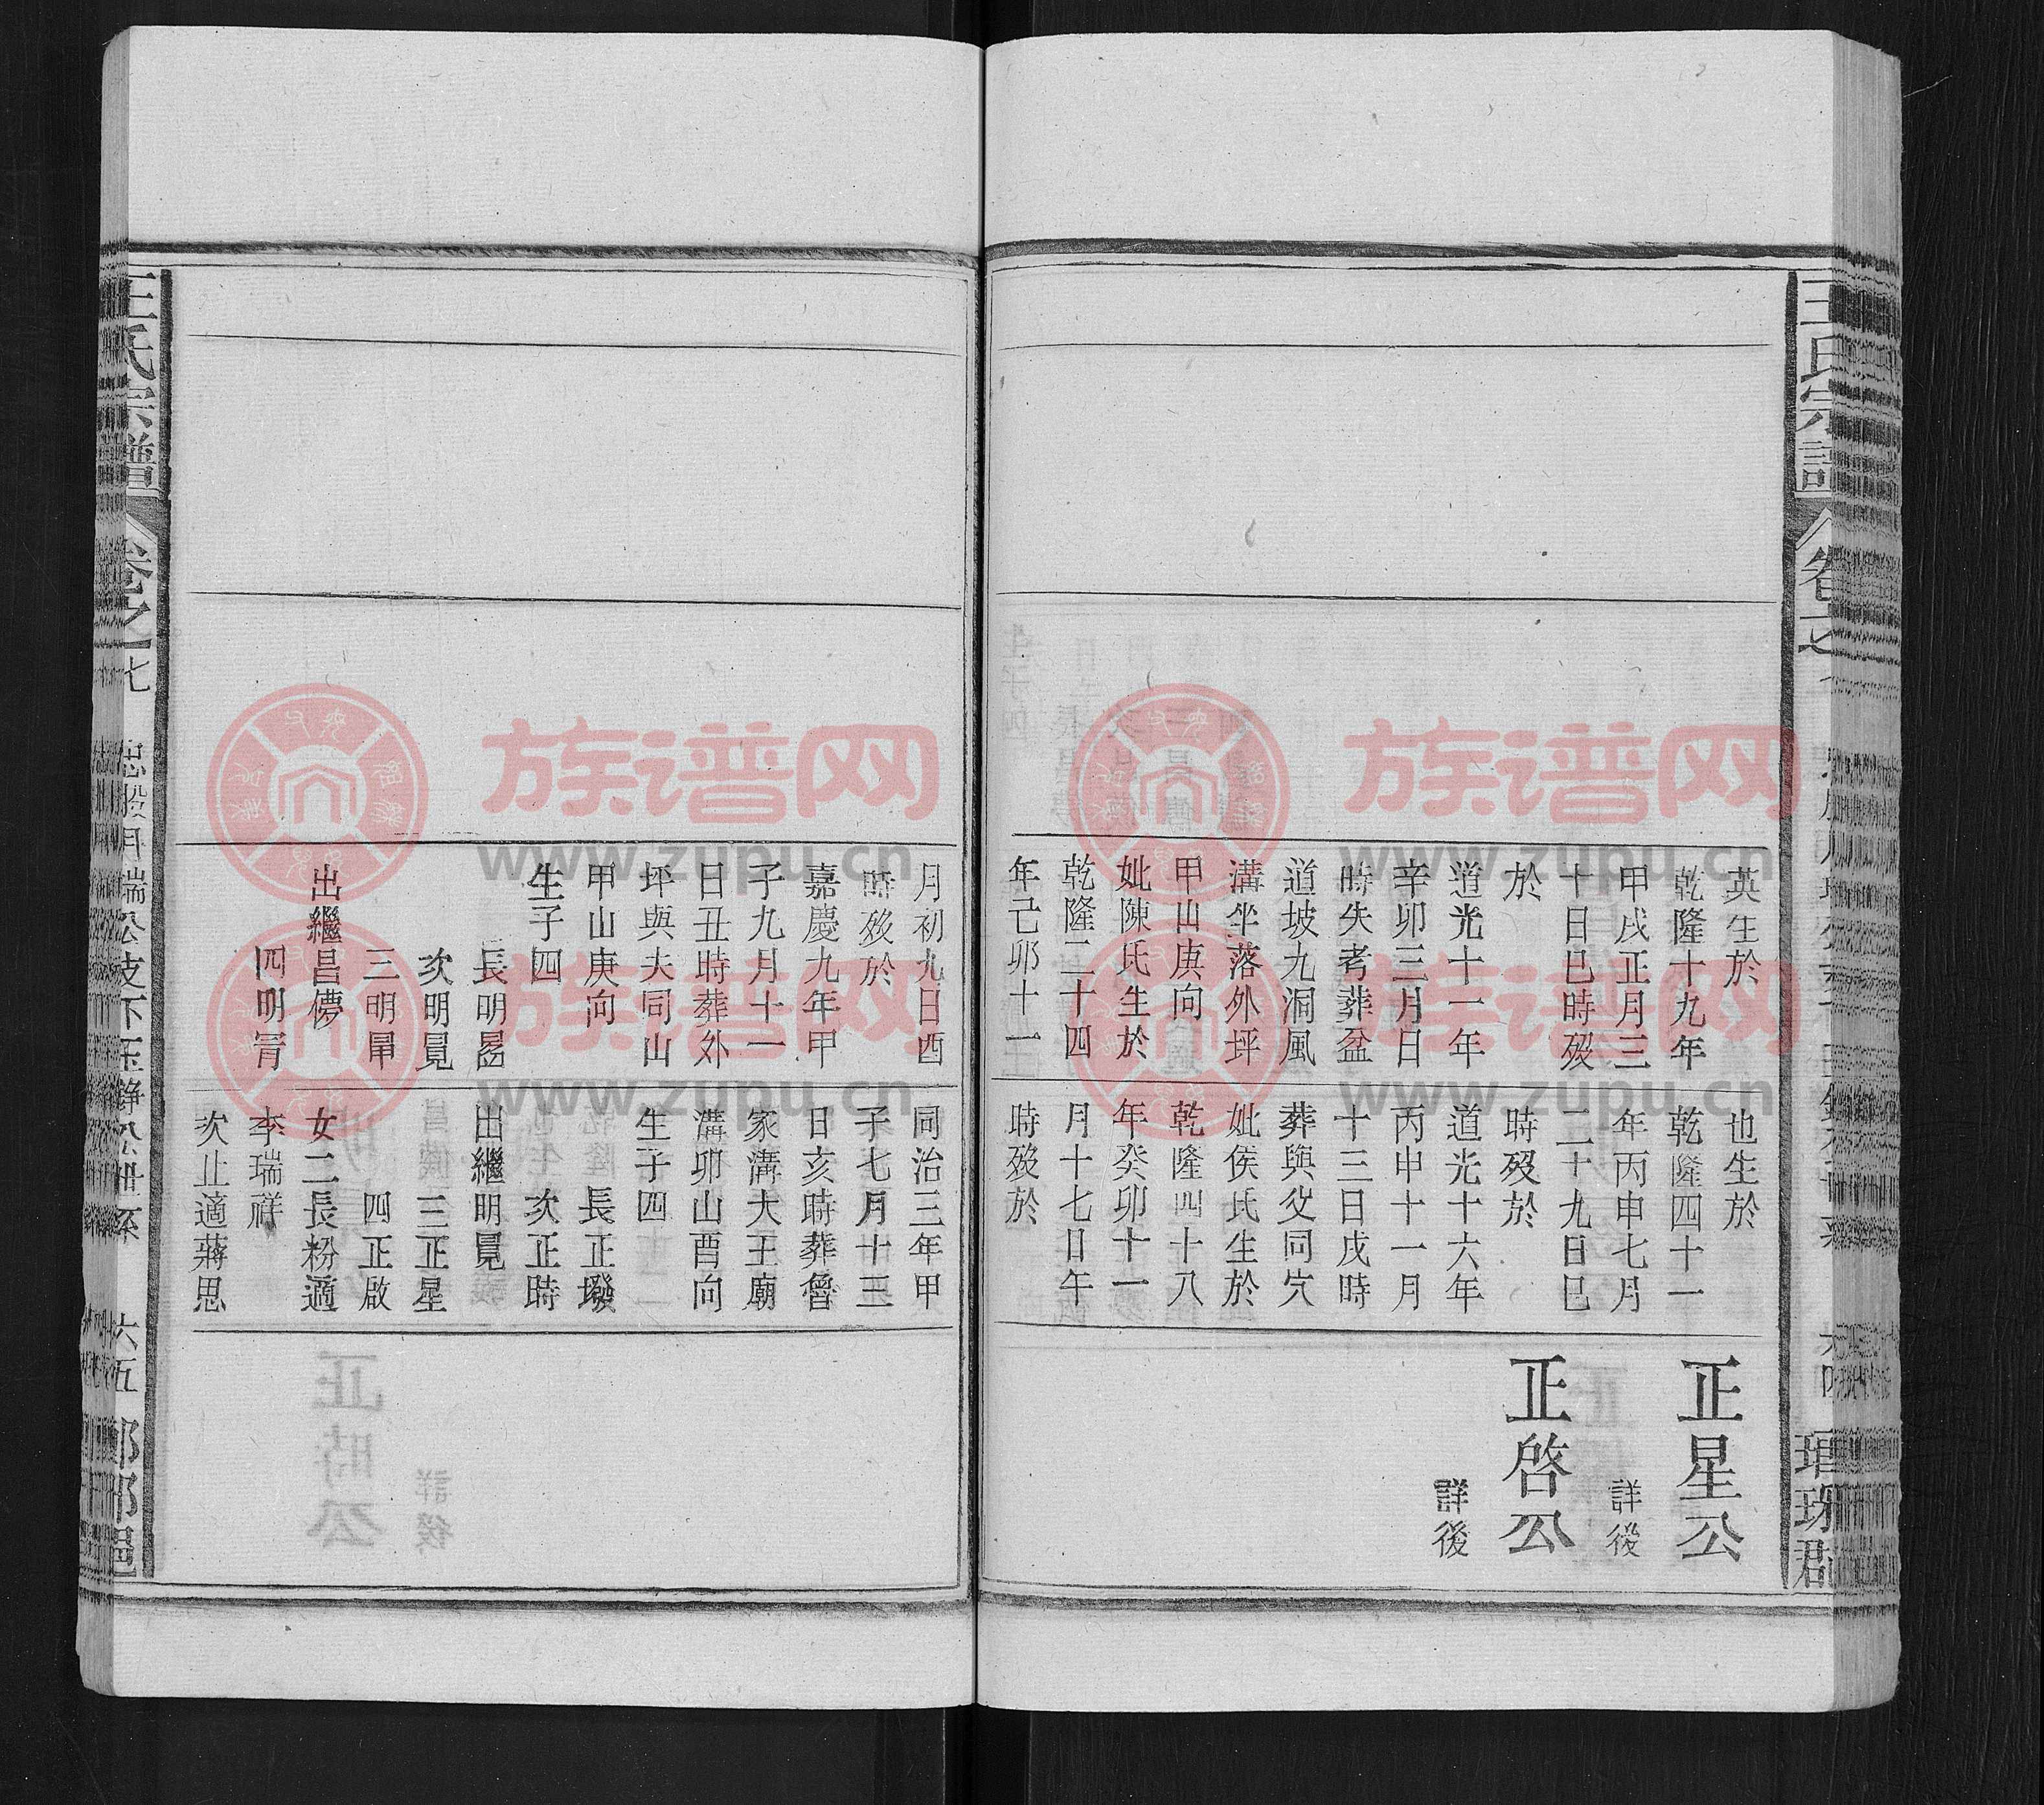 英生於
乾隆十九年
甲戌正月三
十日巳時歿
於
道光十一年
辛卯三月日
時失考葬盆
道坡九洞風
溝坐落外坪
甲山庚向
妣陳氏生於
乾隆二十四
年己卯十一
也生於
乾隆四十一
年丙申七月
二十九日巳
時歿於
道光十六年
丙申十一月
十三日戌時
葬與父同穴
妣侯氏生於
乾隆四十八
年癸卯十一
月十七日午
時歿於
正星公
詳後
正啓公
詳後
瑯琊郡
月初九日酉
時歿於
嘉慶九年甲
子九月十一
日丑時葬外
坪與夫同山
甲山庚向
生子四
長明勗
次明冕
三明冔
出繼昌儚
四明冑
同治三年甲
子七月十三
日亥時葬魯
家溝大王廟
溝卯山酉向
生子四
長正墢
次正時
出繼明冕
三正星
四正啟
女二長粉適
李瑞祥
次止適蔣思
王氏宗譜
卷之七
忠股月瑞公支下玉錚公世系
六五
族谱网
www.zupu.cn
www.zupu.cn
族谱网
www.zupu.cn
www.zupu.cn